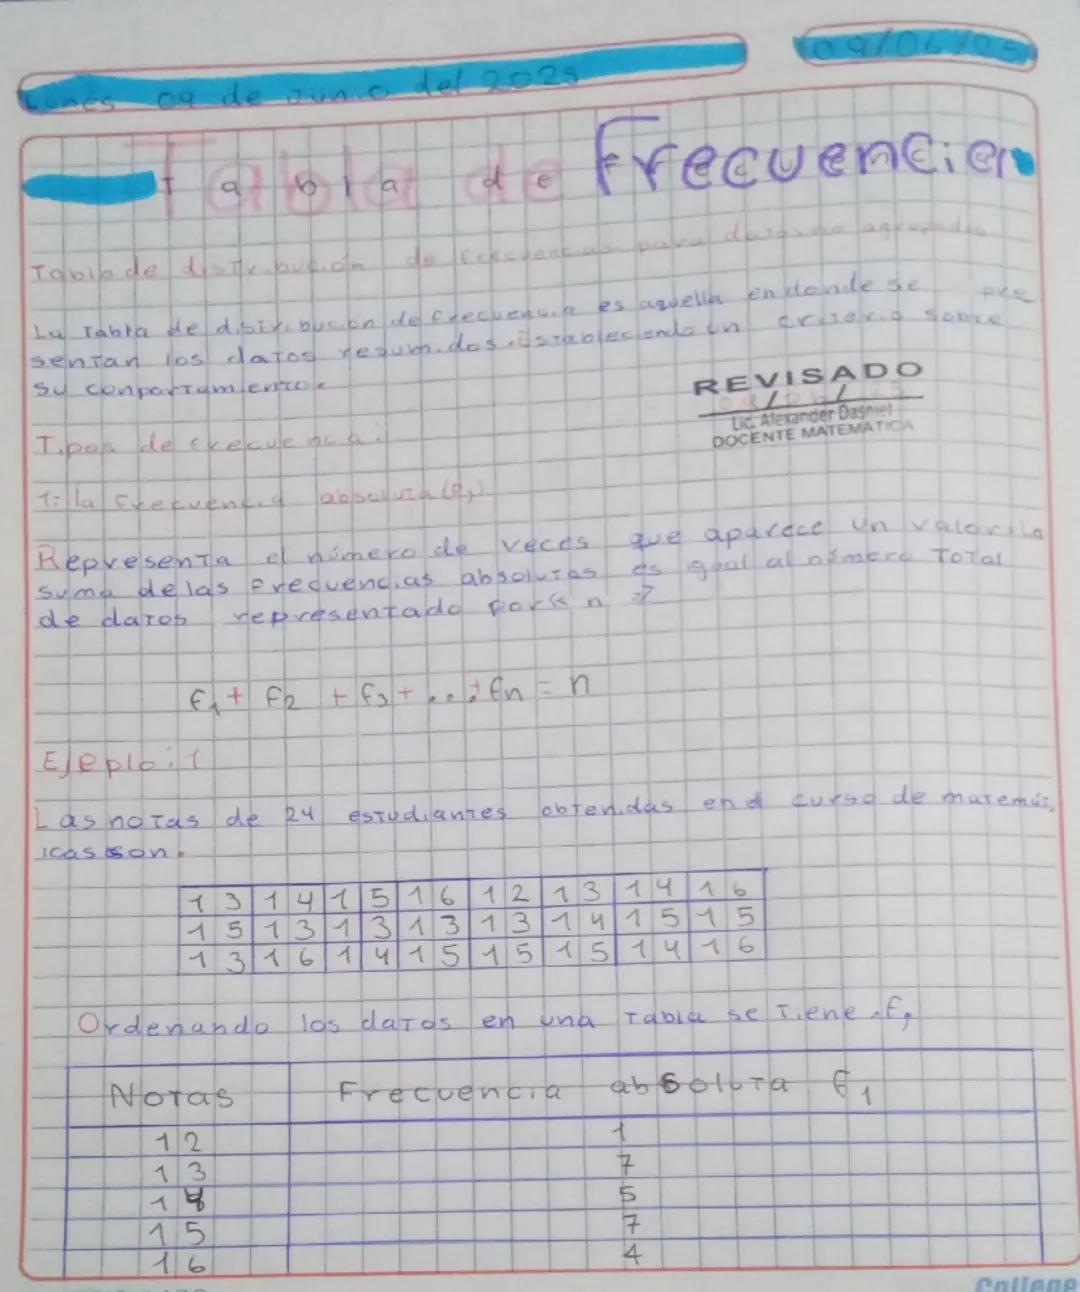 Lunes 09 de Junio del 2025
09/06/25
Tabla de Frecuencia
Tabla de distribución de frecuencias para datos no agrupados
La Tabla de distribución de frecuencia es aquella en donde se pre
sentan los datos resumidos. Estableciendo un criterio sobre
su conportamiento.
REVISADO
09/06/25
Lic. Alexander Dagniel
DOCENTE MATEMÁTICA
Tipos de frecuencia:
1: la frecuencia absoluta (f₁)
Representa el número de veces que aparece un valor. La
suma de las frecuencias absolutas es igual al número Total
de datos representado por << n >>
f₁ + f₂ + f₃ + ... + fn = n
Ejeplo: 1
Las notas de 24 estudiantes obtenidas en el curso de matemát
icas son.
13 14 15 16 12 13 14 16
15 13 13 13 13 14 15 15
13 16 14 15 15 15 14 16
Ordenando los datos en una Tabla se Tiene. f₁
Notas Frecuencia absoluta f₁
12 1
13 7
14 5
15 7
16 4
College